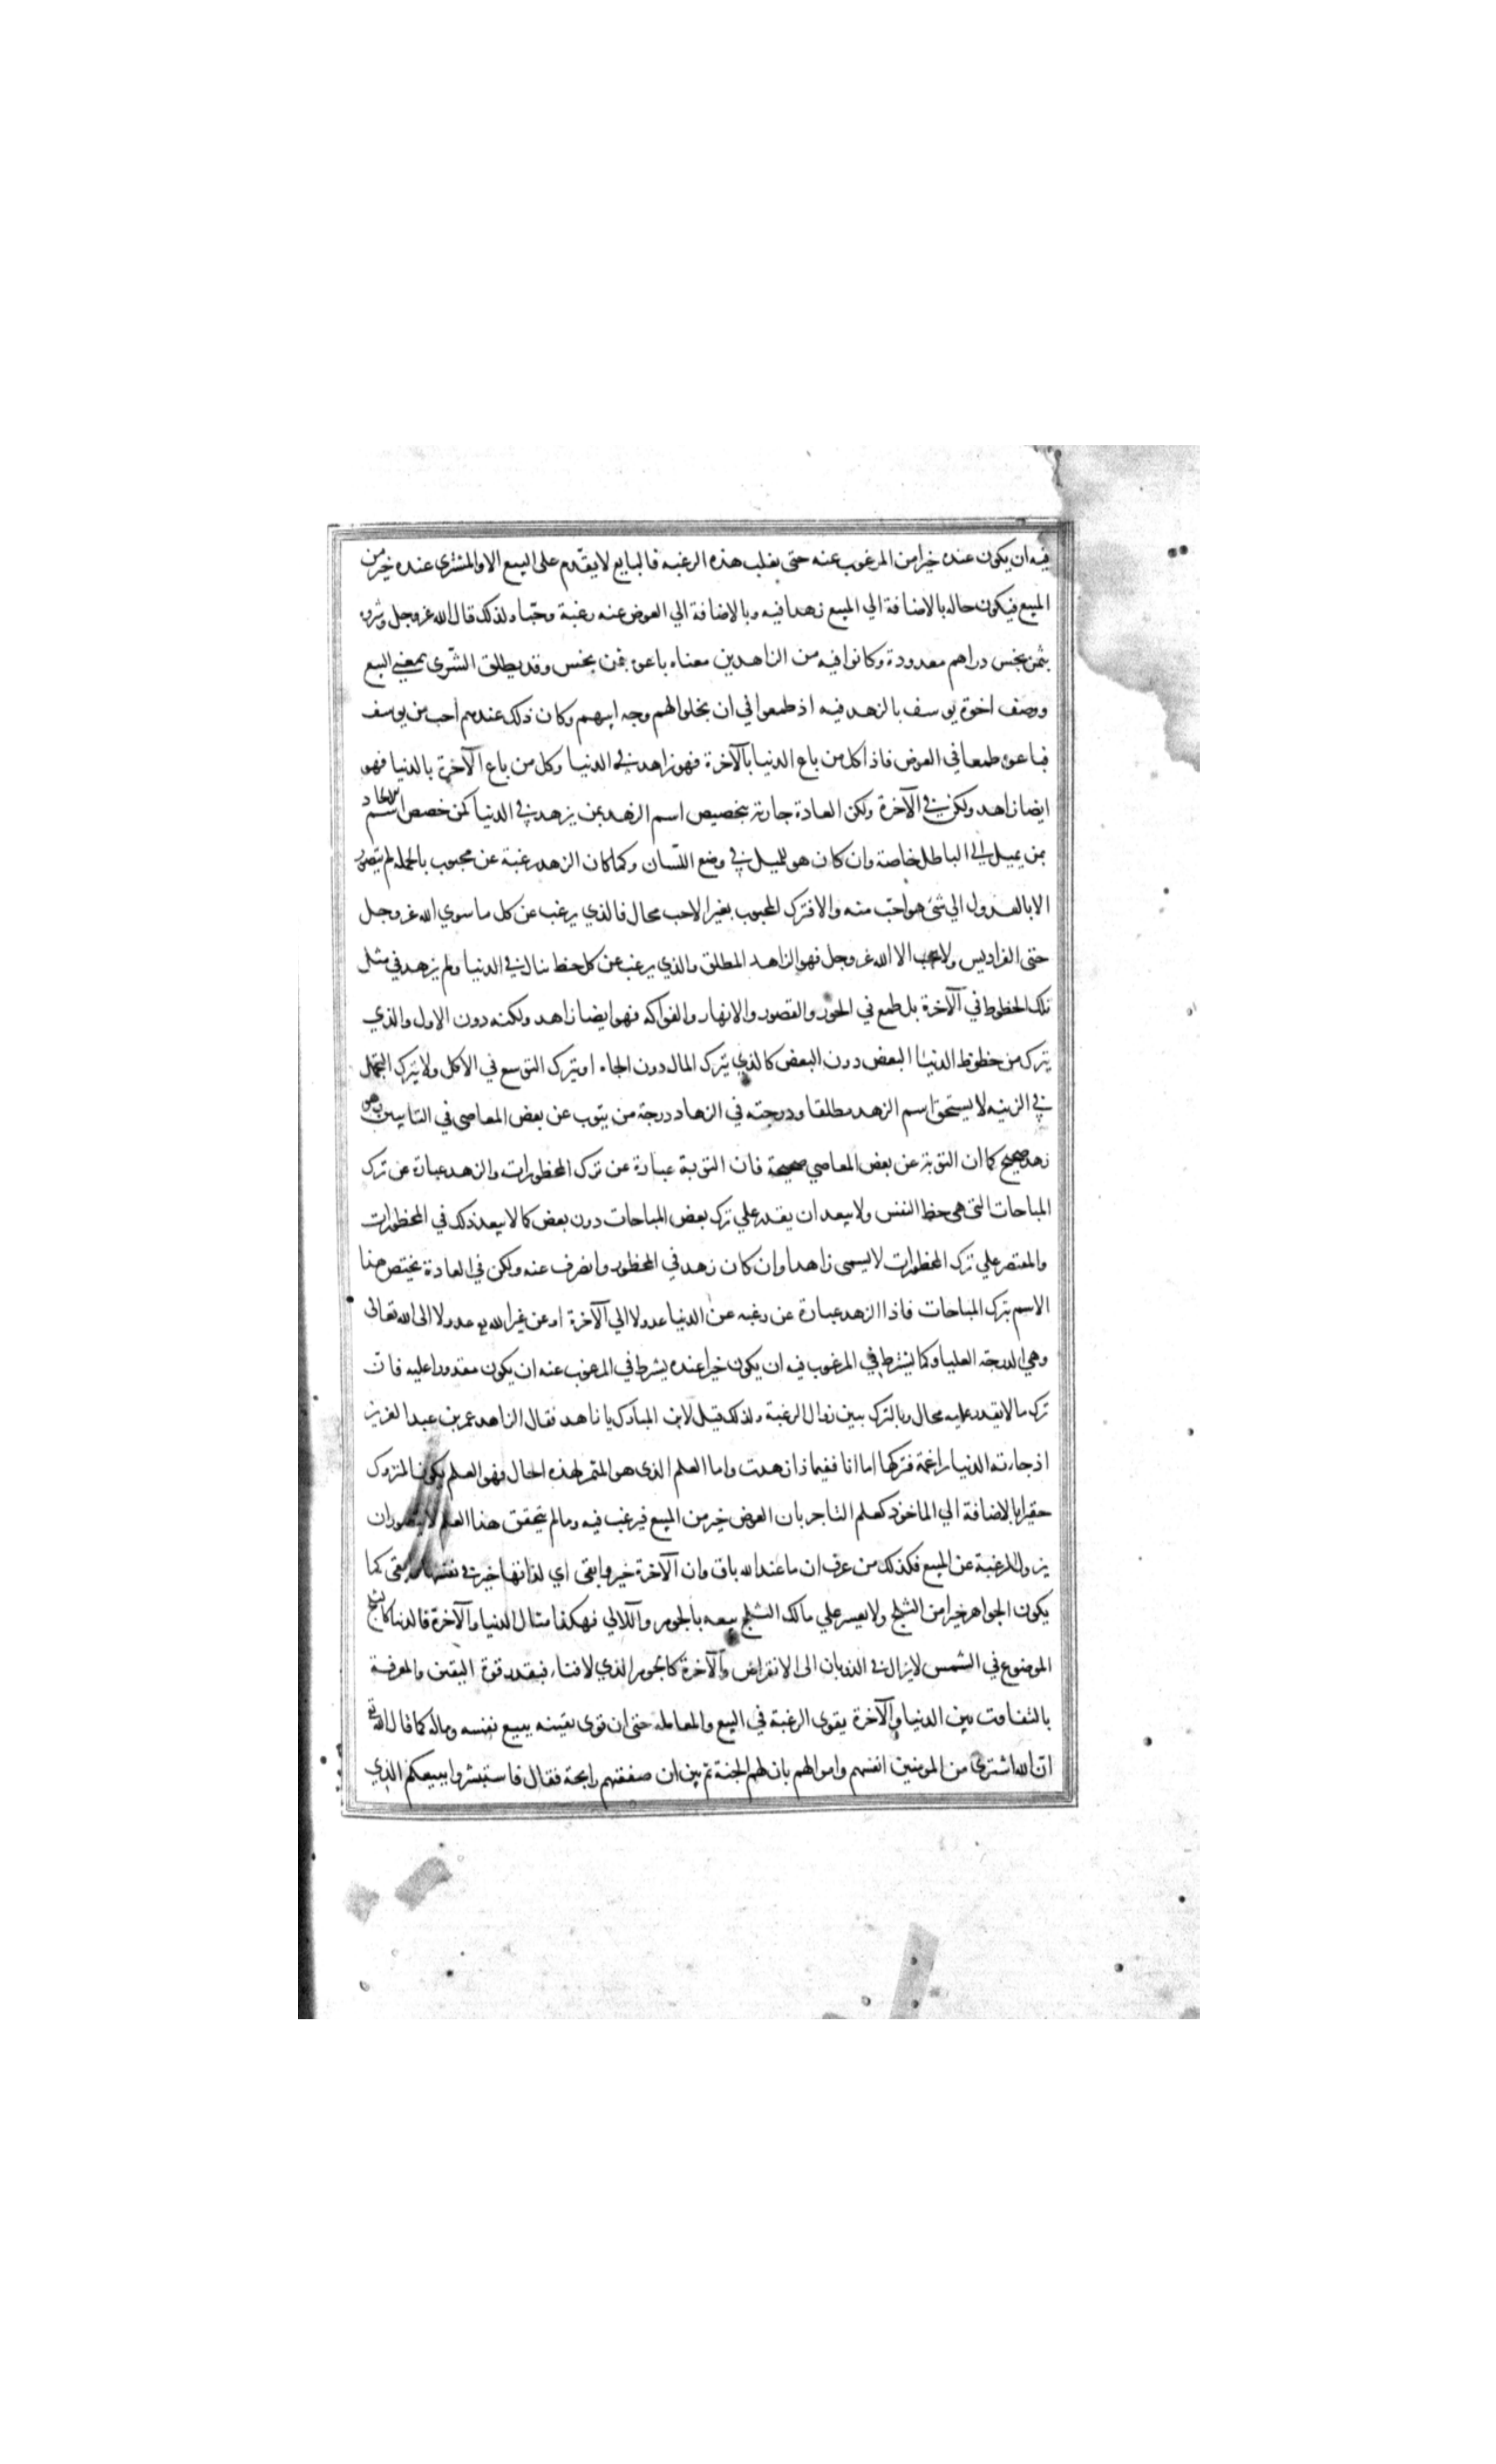 فيه ان يكون عنده خيرا من المرغوب عنه حتى يغلب هذه الرغبه فالبايع لا يقدم على البيع الا والمشترى عنده خير من
المبيع فيكون حاله بالاضافة الي المبيع زهدا فيه وبالاضافة الي العوض عنه رغبة وحبّا ولذلك قال الله عز وجل وشروه
بثمن بخس دراهم معدودة وكانوا فيه من الزاهدين معناه باعوه بثمن بخس وقد يطلق الشّرى بمعني البيع
ووصف اخوة يوسف بالزهد فيه اذ طمعوا في ان يخلوا لهم وجه ابيهم وكان ذلك عندهم أحب من يوسف
فباعوه طمعا في العوض فاذا كل من باع الدنيا بالآخرة فهو زاهد في الدنيا وكل من باع الآخرة بالدنيا فهو
ايضا زاهد ولكن في الآخرة ولكن العادة جارية بتخصيص اسم الزهد بمن يزهد في الدنيا كمن خصص اسم الالحاد
بمن يميل الى الباطل خاصة وان كان هو للميل في وضع اللسان وكما كان الزهد رغبة عن محبوب بالجمله لم يتصور
الا بالعدول الي شئ هو احبّ منه والا فترك المحبوب بغير الاحب محال فالذي يرغب عن كل ما سوي الله عز وجل
حتى الفراديس ولا يحب الا الله عز وجل فهو الزاهد المطلق والذي يرغب عن كل حظ ينال في الدنيا ولم يزهد في مثل
تلك الحظوظ في الآخرة بل طمع في الحور والقصور والانهار والفواكه فهو ايضا زاهد ولكنه دون الاول والذي
يترك من حظوظ الدنيا البعض دون البعض كالذي يترك المال دون الجاه او يترك التوسع في الاكل ولا يترك التجمل
في الزينه لا يستحق اسم الزهد مطلقا ودرجته في الزهاد درجة من يتوب عن بعض المعاصي في التايبين وهو
زهد صحيح كما ان التوبة عن بعض المعاصي صحيحة فان التوبة عبادة عن ترك المحظورات والزهد عبارة عن ترك
المباحات التي هي حظ النفس ولا يبعد ان يقدر علي ترك بعض المباحات دون بعض كما لا يبعد ذلك في المحظورات
والمقتصر علي ترك المحظورات لا يسمى زاهدا وان كان زهد في المحظور وانصرف عنه ولكن في العادة يختص هذا
الاسم بترك المباحات فاذا الزهد عبارة عن رغبه عن الدنيا عدولا الي الآخرة او عن غير الله عدولا الى الله تعالى
وهي الدرجة العليا وكما يشترط في المرغوب فيه ان يكون خيرا عنده يشرط في المرغوب عنه ان يكون مقدورا عليه فان
ترك ما لا يقدر عليه محال وبالترك يبين زوال الرغبة ولذلك قيل لابن المبارك يا زاهد فقال الزاهد عمر بن عبد العزيز
اذ جاءته الدنيا راغمة فتركها اما انا ففيما ذا زهدت واما العلم الذى هو المثمر لهذه الحال فهو العلم بكون المتروك
حقيرا بالاضافة الي الماخوذ كعلم التاجر بان العوض خير من المبيع فيرغب فيه وما لم يتحقق هذا العلم لا يتصور ان
يزول الرغبة عن المبيع فكذلك من عرف ان ما عند الله باق وان الآخرة خير وابقى اي لذاتها خير في نفسها وابقى كما
يكون الجواهر خيرا من الثلج ولا يعسر علي مالك الثلج بيعه بالجوهر واللآلي فهكذا مثال الدنيا والآخرة فالدنيا كالثلج
الموضوع في الشمس لا يزال في الذوبان الى الانقراض والآخرة كالجوهر الذي لا فناء فبقدر قوة اليقين والمعرفة
بالتفاوت بين الدنيا والآخرة يقوى الرغبة في البيع والمعامله حتى ان قوى يقينه يبيع نفسه وماله كما قال الله تع
ان الله اشترى من المومنين انفسهم واموالهم بان لهم الجنة ثم بين ان صفقتهم رابحة فقال فاستبشروا ببيعكم الذي